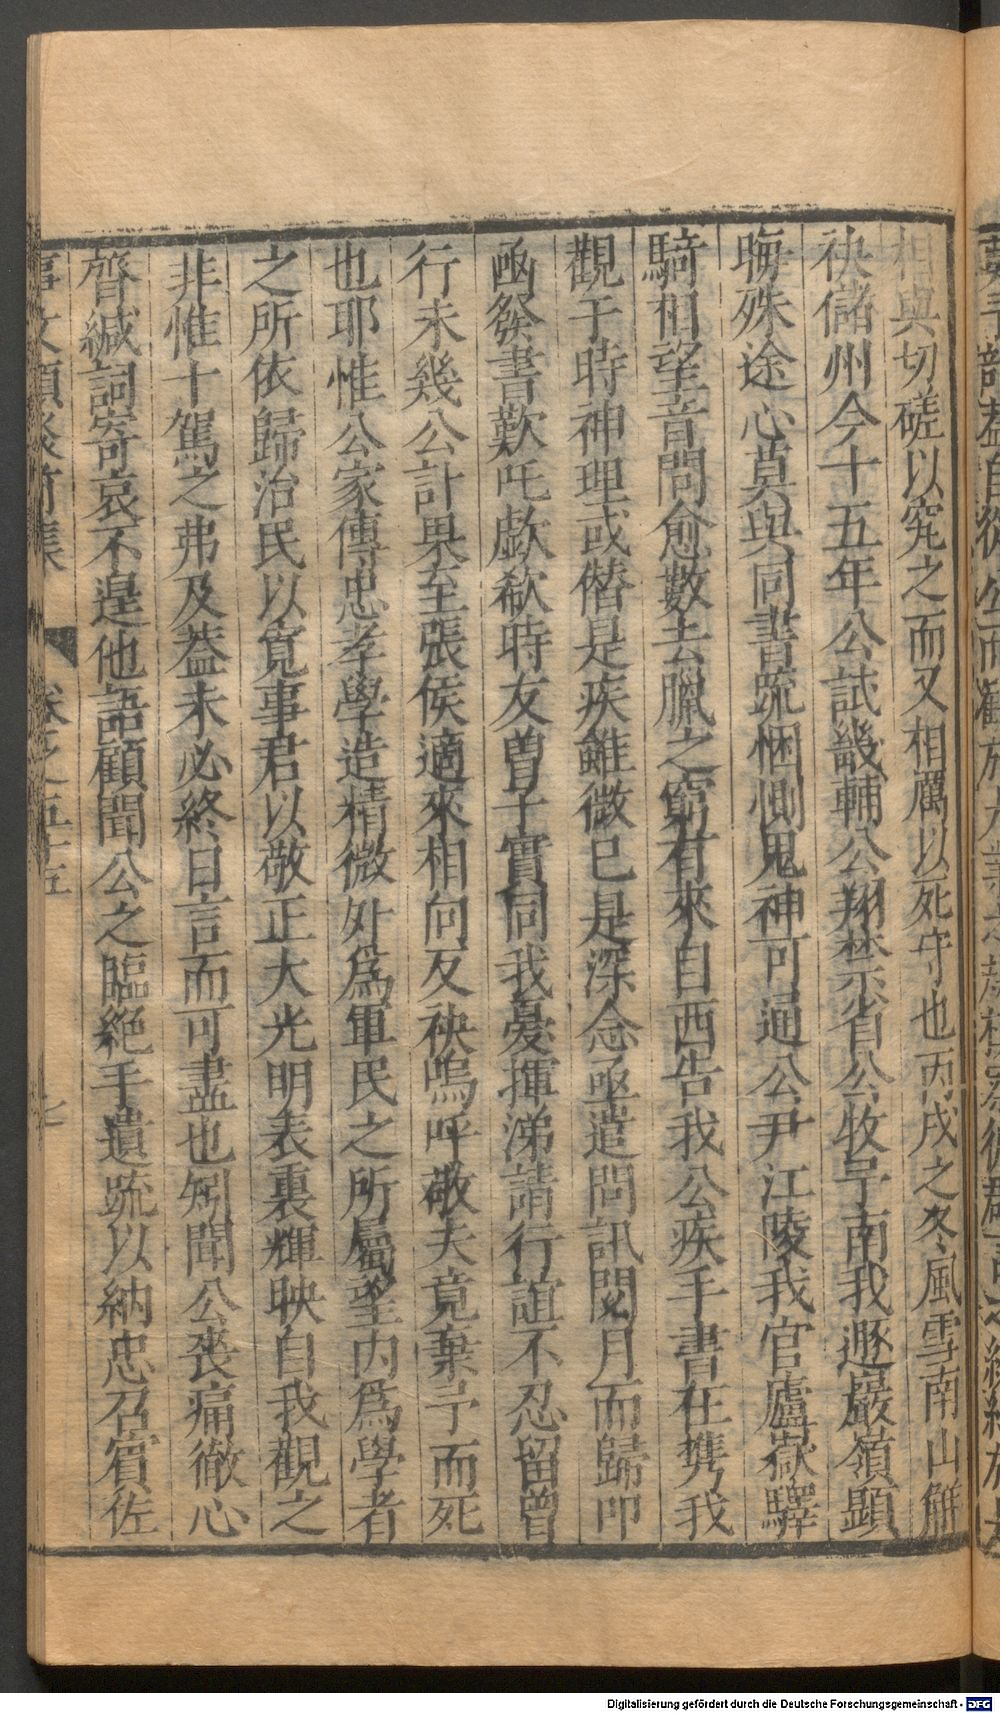 相與切磋以究之而又相厲以死守也丙戌之冬風雪南山解
袂儲州今十五年公試畿輔公翔禁省公牧予南我遯巖嶺顯
晦殊途心莫與同書疏悃惻鬼神可通公尹江陵我官廬嶽驛
騎相望音問愈數去臘之窮有來自西告我公疾手書在携我
觀于時神理或僣是疾雖微已是深念亟遣問訊閱月而歸叩
凾發書歎吒歔欷時友曽子實同我憂揮涕請行誼不忍留曽
行未幾公訃果至張侯適來相向反袂嗚呼敬夫竟棄予而死
也耶惟公家傳忠孝學造精微外爲軍民之所屬望内爲學者
之所依歸治民以寬事君以敬正大光明表裏輝映自我觀之
非惟十駕之弗及葢未必終日言而可盡也矧聞公喪痛徹心
膂緘詞寄哀不遑他語顧聞公之臨絶手遺疏以納忠召賓佐
事文類聚前集 卷之五十五 七
Digitalisierung gefördert durch die Deutsche Forschungsgemeinschaft - DFG